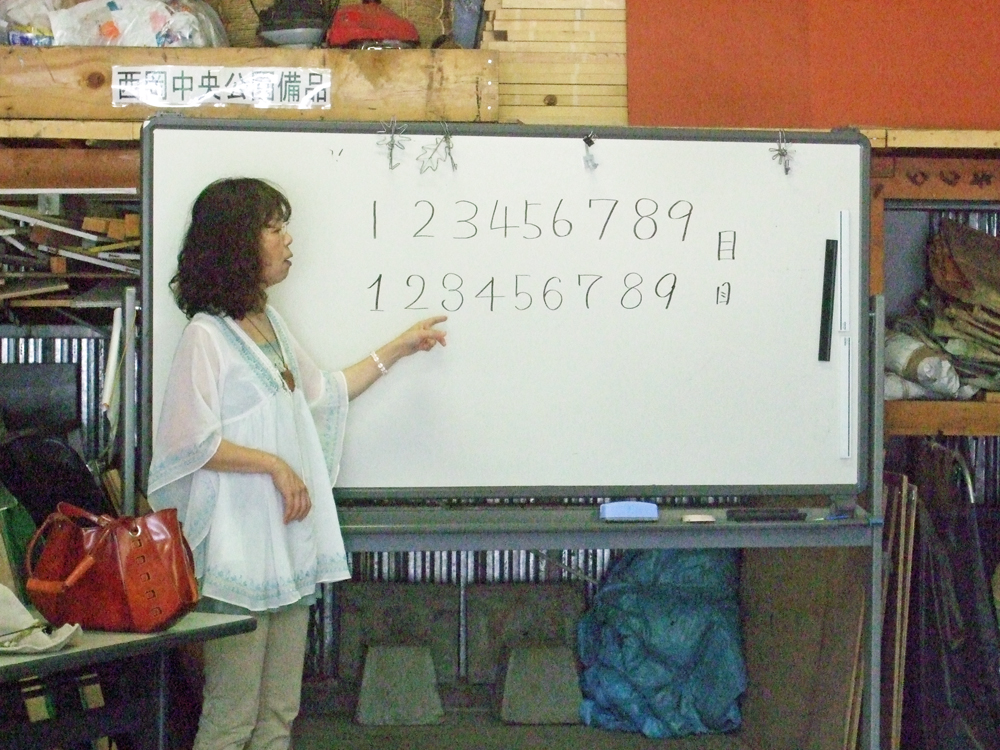 西岡中央公園備品
1 2 3 4 5 6 7 8 9 目
1 2 3 4 5 6 7 8 9 目